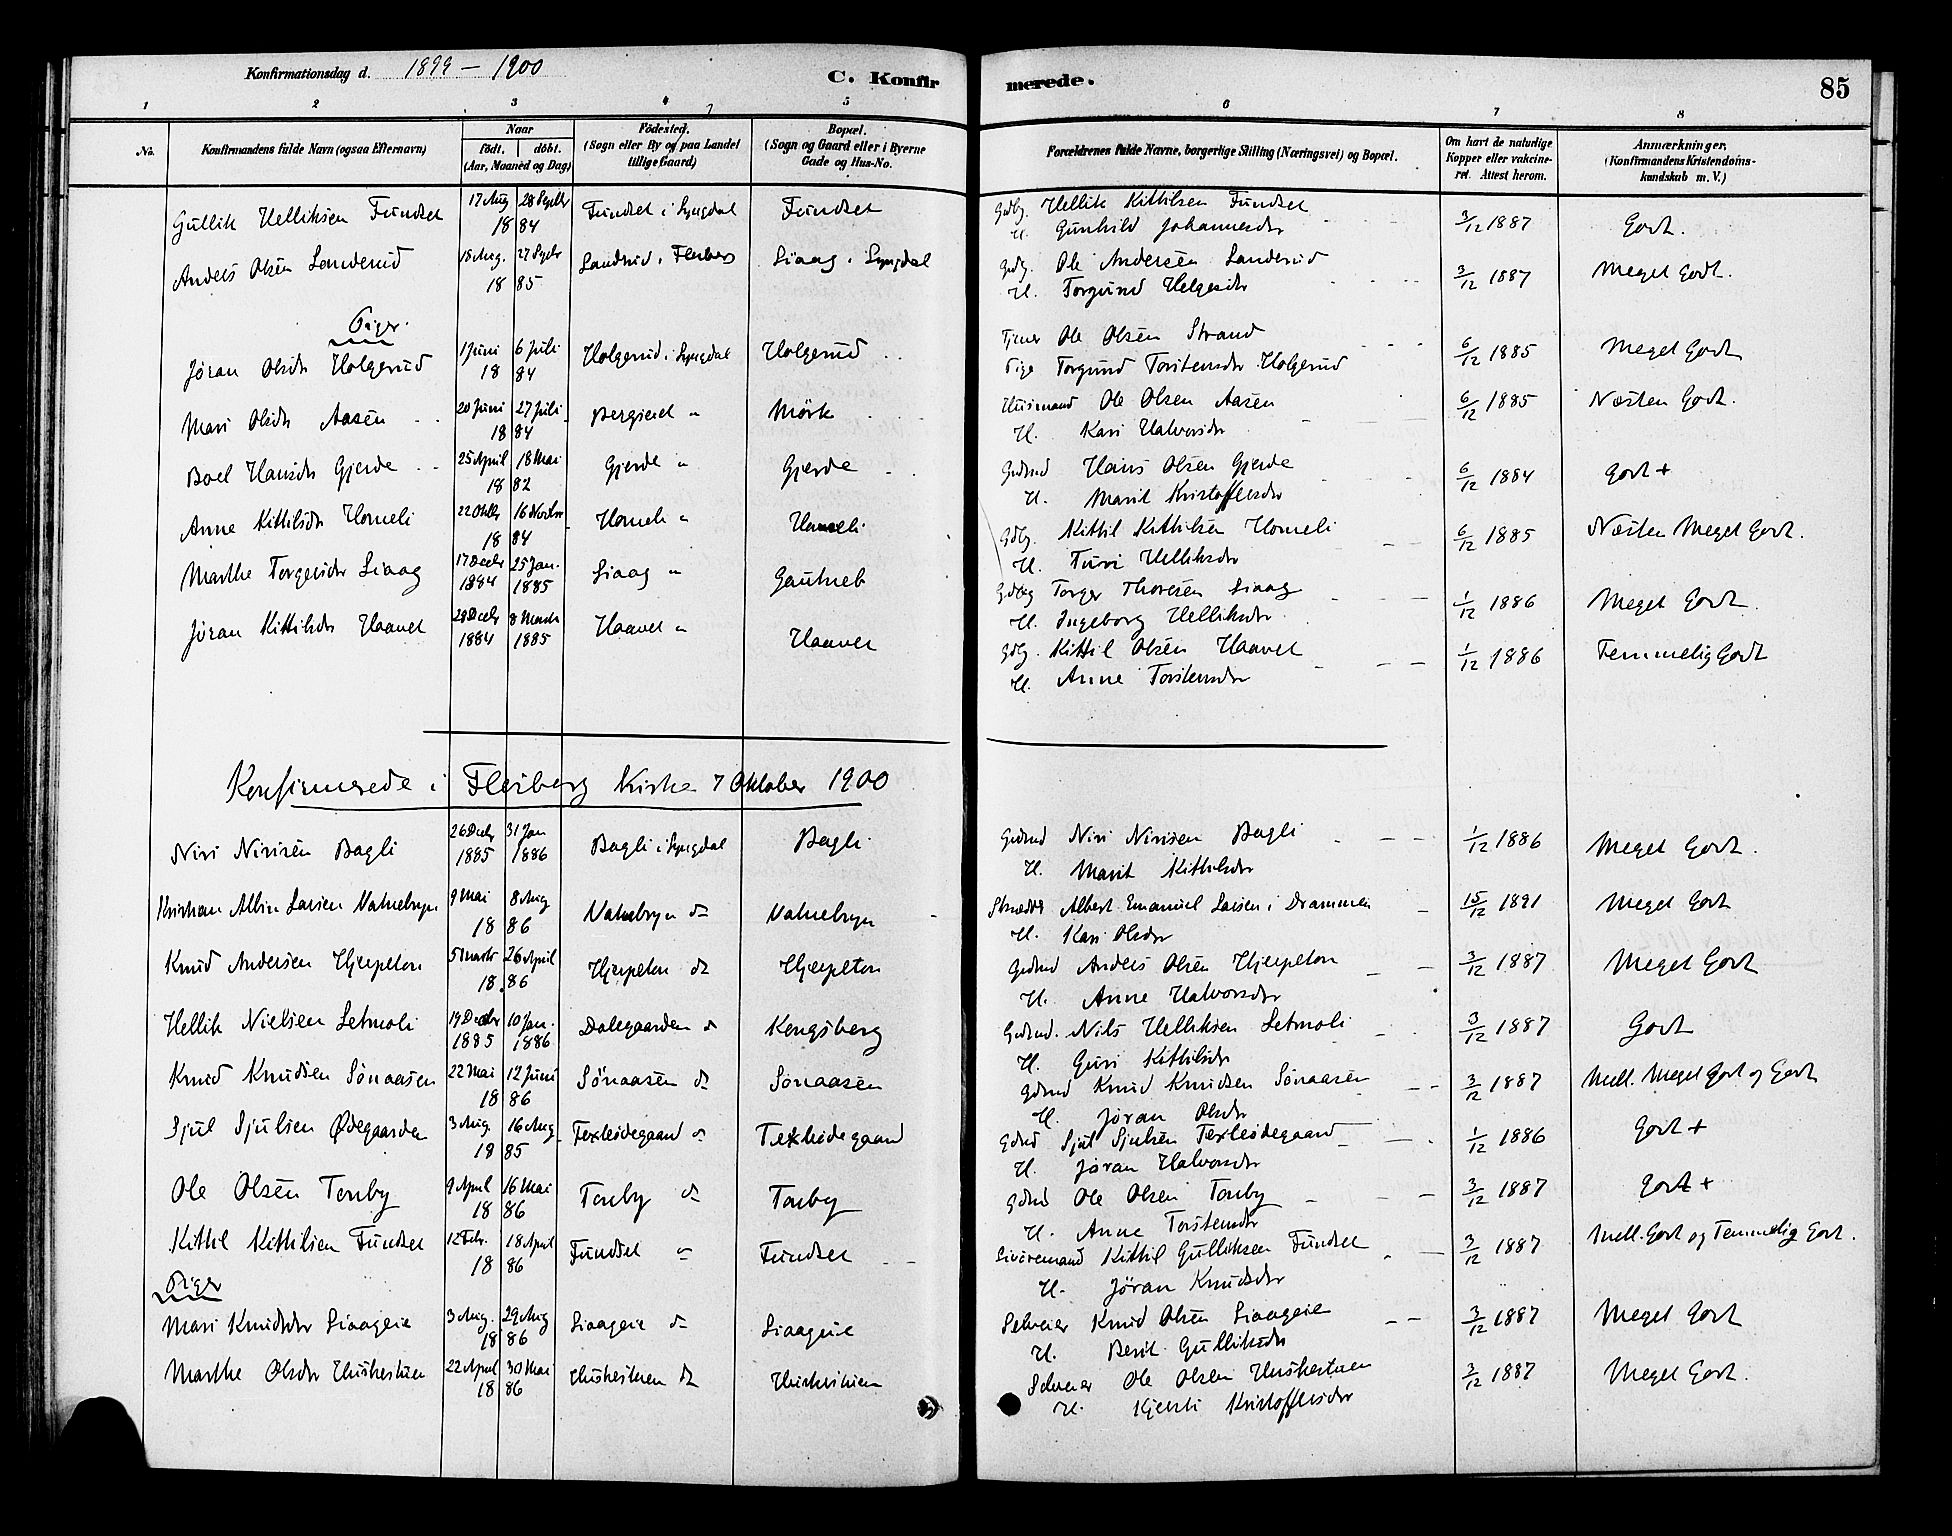 Konfirmationsdag d. 1899 – 1900
C. Konfirmerede.
85
1 2 3 4 5 6 7 8
No.
Konfirmandens fulde Navn (ogsaa Efternavn)
Naar
födt. döbt.
(Aar, Maaned og Dag)
Födested.
(Sogn eller By og paa Landet
tillige Gaard)
Bopæl.
(Sogn og Gaard eller i Byerne
Gade og Hus-No.
Forældrenes fulde Navne, borgerlige Stilling (Næringsvei) og Bopæl.
Om havt de naturlige
Kopper eller vakcine-
ret. Attest herom.
Anmærkninger.
(Konfirmandens Kristendoms-
kundskab m. V.)
Gullik Helliksen Fundset 17 Aug 28 Septbr 1884 Fundset i Lyngdal Fundset Gdbg. Hellik Kittilsen Fundset 3/12 1887 Godt.
H. Gunhild Johannesdr
Anders Olsen Landerud 18 Aug. 27 Septbr 1885 Landrud i Flesberg Liaag i Lyngdal Gdbg. Ole Andersen Landerud 3/12 1887 Meget Godt.
H. Torgund Helgesdr
Piger.
Jøran Olsdr Holgerud 1 Juni 6 Juli 1884 Holgerud i Lyngdal Holgerud Tjener Ole Olsen Strand 6/12 1885 Meget Godt
Pige Torgund Torstensdr Holgerud
Mari Olsdr Aasen 20 Juni 27 Juli 1884 " Mörk Husmand Ole Olsen Aasen 6/12 1885 Næsten Godt.
H. Kari Halvorsdr
Boel Hansdr Gjerde 25 April 18 Mai 1882 Gjerde " Gjerde Grdmd Hans Olsen Gjerde 6/12 1884 Godt +
H. Marit Kristoffersdr
Anne Kittilsdr Homeli 22 Oktbr 16 Novbr 1884 Homeli " Homeli Gdbg. Kittil Kittilsen Homeli 6/12 1885 Næsten Meget Godt.
H. Turi Helliksdr
Marthe Torgersdr Liaag 17 Decbr 1884 25 Jan. 1885 Liaag " Gdbg Torger Thoresen Liaag 1/12 1886 Meget Godt.
H. Ingeborg Helliksdr
Jøran Kittilsdr Haavet 28 Decbr 1884 8 Marts 1885 Haavet " Haavet Gdbg. Kittil Olsen Haavet 1/12 1886 Temmelig Godt
H. Anne Torstensdr
Konfirmerede i Flesberg Kirke 7 Oktober 1900
Niri Nirisen Bagli 26 Decbr 1885 31 Jan 1886 Bagli i Lyngdal Bagli Grdmd Niri Nirisen Bagli 1/12 1886 Meget Godt.
H. Marit Kittilsdr
Kristian Albin Larsen Vatnebryn 9 Mai 8 Aug 1886 Vatnebryn do Vatnebryn Skrædder Albert Emanuel Larsen i Drammen 15/12 1891 Meget Godt
H. Kari Olsdr
Knud Andersen Hjerpeton 5 Marts 26 April 1886 Hjerpeton do Hjerpeton Grdmd Anders Olsen Hjerpeton 3/12 1887 Meget Godt
H. Anne Halvorsdr
Hellik Nielsen Setmoli 19 Decbr 1885 10 Jan. 1886 Dalegaarden do Kongsberg Grdmd. Nils Helliksen Setmoli 3/12 1887 Godt
H. Guri Kittilsdr
Knud Knudsen Sönaasen 22 Mai 12 Juni 1886 Sönaasen do Sönaasen Gdmd Knud Knudsen Sönaasen 3/12 1887 Mell. Meget Godt og Godt
H. Jøran Olsdr
Sjul Sjulsen Ødegaarden 3 Aug 16 Aug 1885 Texleödegaard do Texleödegaard Gdmd Sjul Sjulsen Texleödegaard 1/12 1886 Godt +
H. Jøran Halvorsdr
Ole Olsen Tonby 9 April 16 Mai 1886 Tonby do Tonby Gdmd Ole Olsen Tonby 3/12 1887 Godt +
H. Anne Torstensdr
Kittil Kittilsen Fundset 12 Febr. 18 April 1886 Fundset " Fundset Livöremand Kittil Gulliksen Fundset 3/12 1887 Mell. Godt og Temmelig Godt.
H. Jøran Knudsdr
Piger
Mari Knudsdr Liaageie 3 Aug. 29 Aug 1886 Liaageie do Liaageie Selveier Knud Olsen Liaageie 3/12 1887 Meget Godt
H. Berit Gulliksdr
Marthe Olsdr Huskestuen 22 April 30 Mai 1886 Huskestuen do Huskestuen Selveier Ole Olsen Huskestuen 3/12 1887 Meget Godt.
H. Kjersti Kristoffersdr